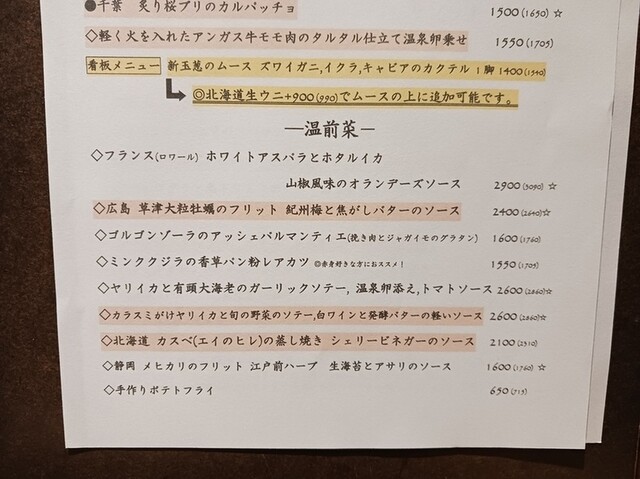 ●千葉 炙り桜ブリのカルパッチョ 1500(1650) ☆
◇軽く火を入れたアンガス牛モモ肉のタルタル仕立て温泉卵乗せ 1550(1705)
看板メニュー 新玉葱のムース ズワイガニ,イクラ,キャビアのカクテル 1脚 1400(1540)
◎北海道生ウニ+900(990)でムースの上に追加可能です。
―温前菜―
◇フランス(ロワール) ホワイトアスパラとホタルイカ
山椒風味のオランデーズソース 2900(3090) ☆
◇広島 草津大粒牡蠣のフリット 紀州梅と焦がしバターのソース 2400(2640)☆
◇ゴルゴンゾーラのアッシェパルマンティエ(挽き肉とジャガイモのグラタン) 1600(1760)
◇ミンククジラの香草パン粉レアカツ ◎赤身好きな方におススメ! 1550(1705)
◇ヤリイカと有頭大海老のガーリックソテー, 温泉卵添え,トマトソース 2600(2860)☆
◇カラスミがけヤリイカと旬の野菜のソテー,白ワインと発酵バターの軽いソース 2600(2860)☆
◇北海道 カスベ(エイのヒレ)の蒸し焼き シェリービネガーのソース 2100(2310)
◇静岡 メヒカリのフリット 江戸前ハーブ 生海苔とアサリのソース 1600(1760) ☆
◇手作りポテトフライ 650(715)